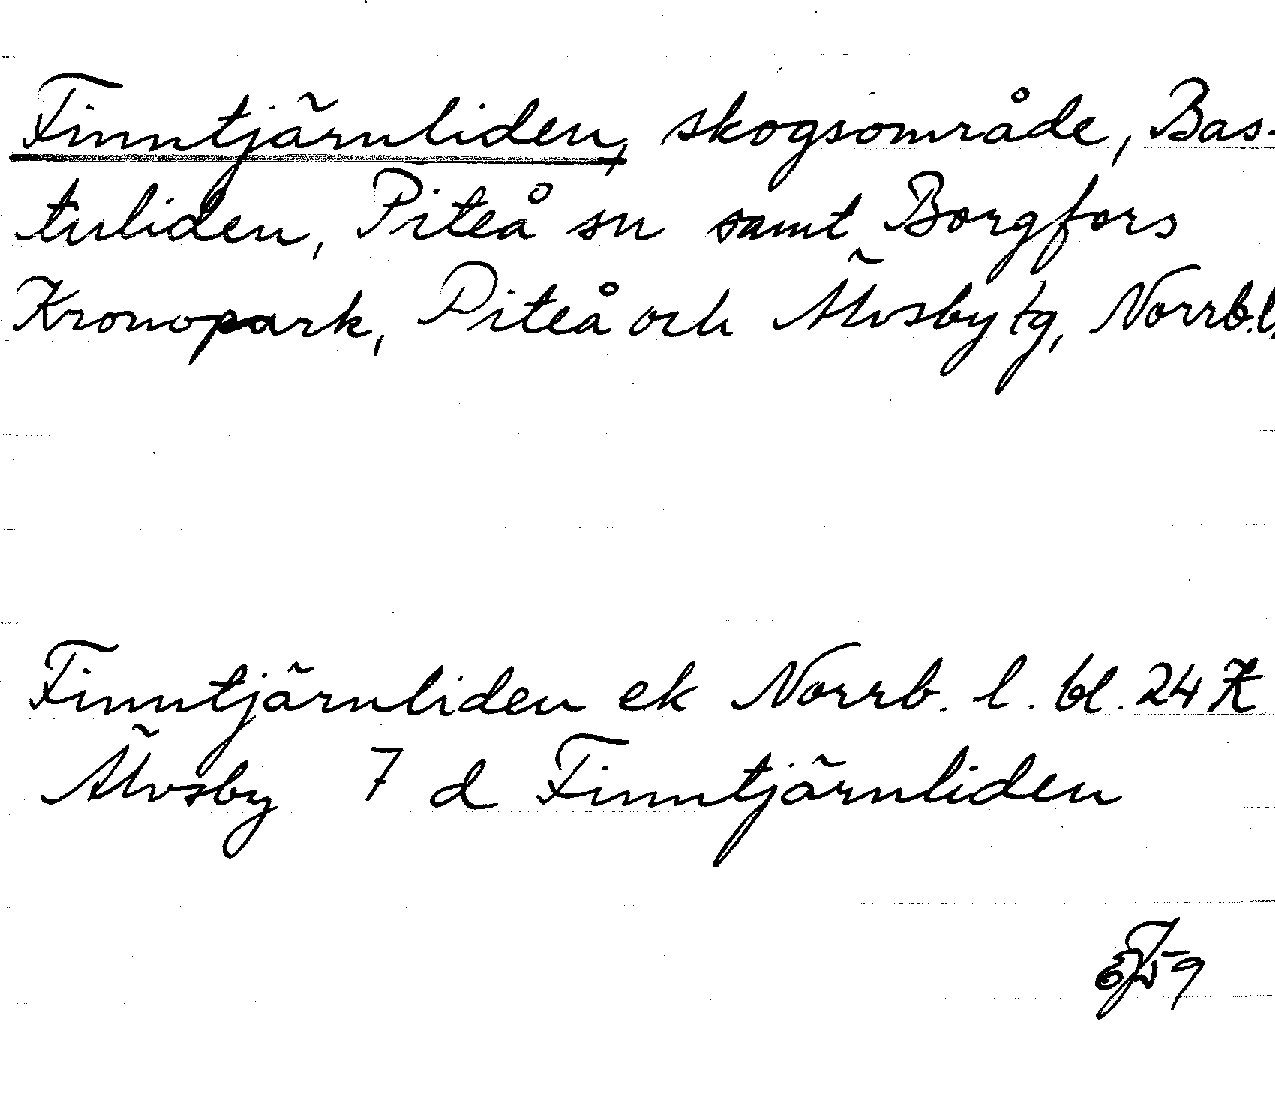 Finntjärnliden, skogsområde, Bas-
tuliden, Piteå sn samt Borgfors
Kronopark, Piteå och Älvsby tg, Norrb.l.
Finntjärnliden ek Norrb. l. bl. 24 K
Älvsby 7 d Finntjärnliden